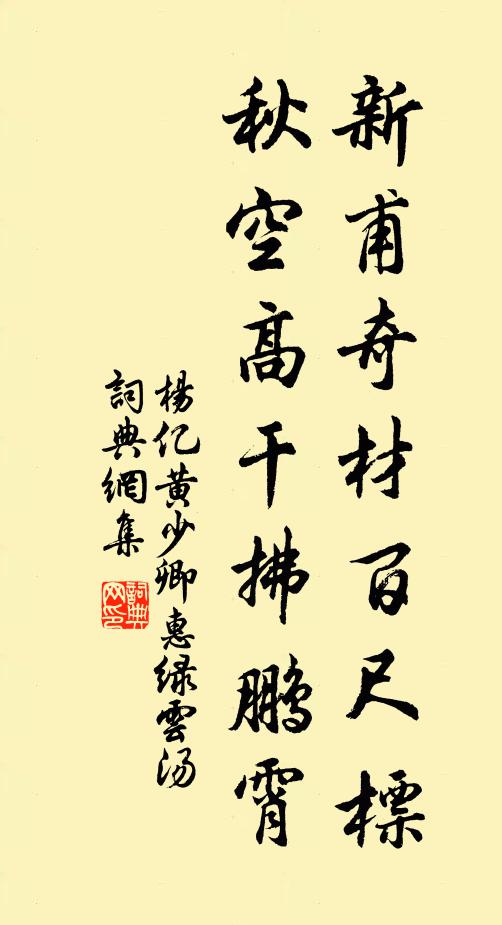 新甫奇材百尺標
秋空高干拂鹏霄
楊亿黄少卿惠绿雲湯
詞典網集
詞典網印